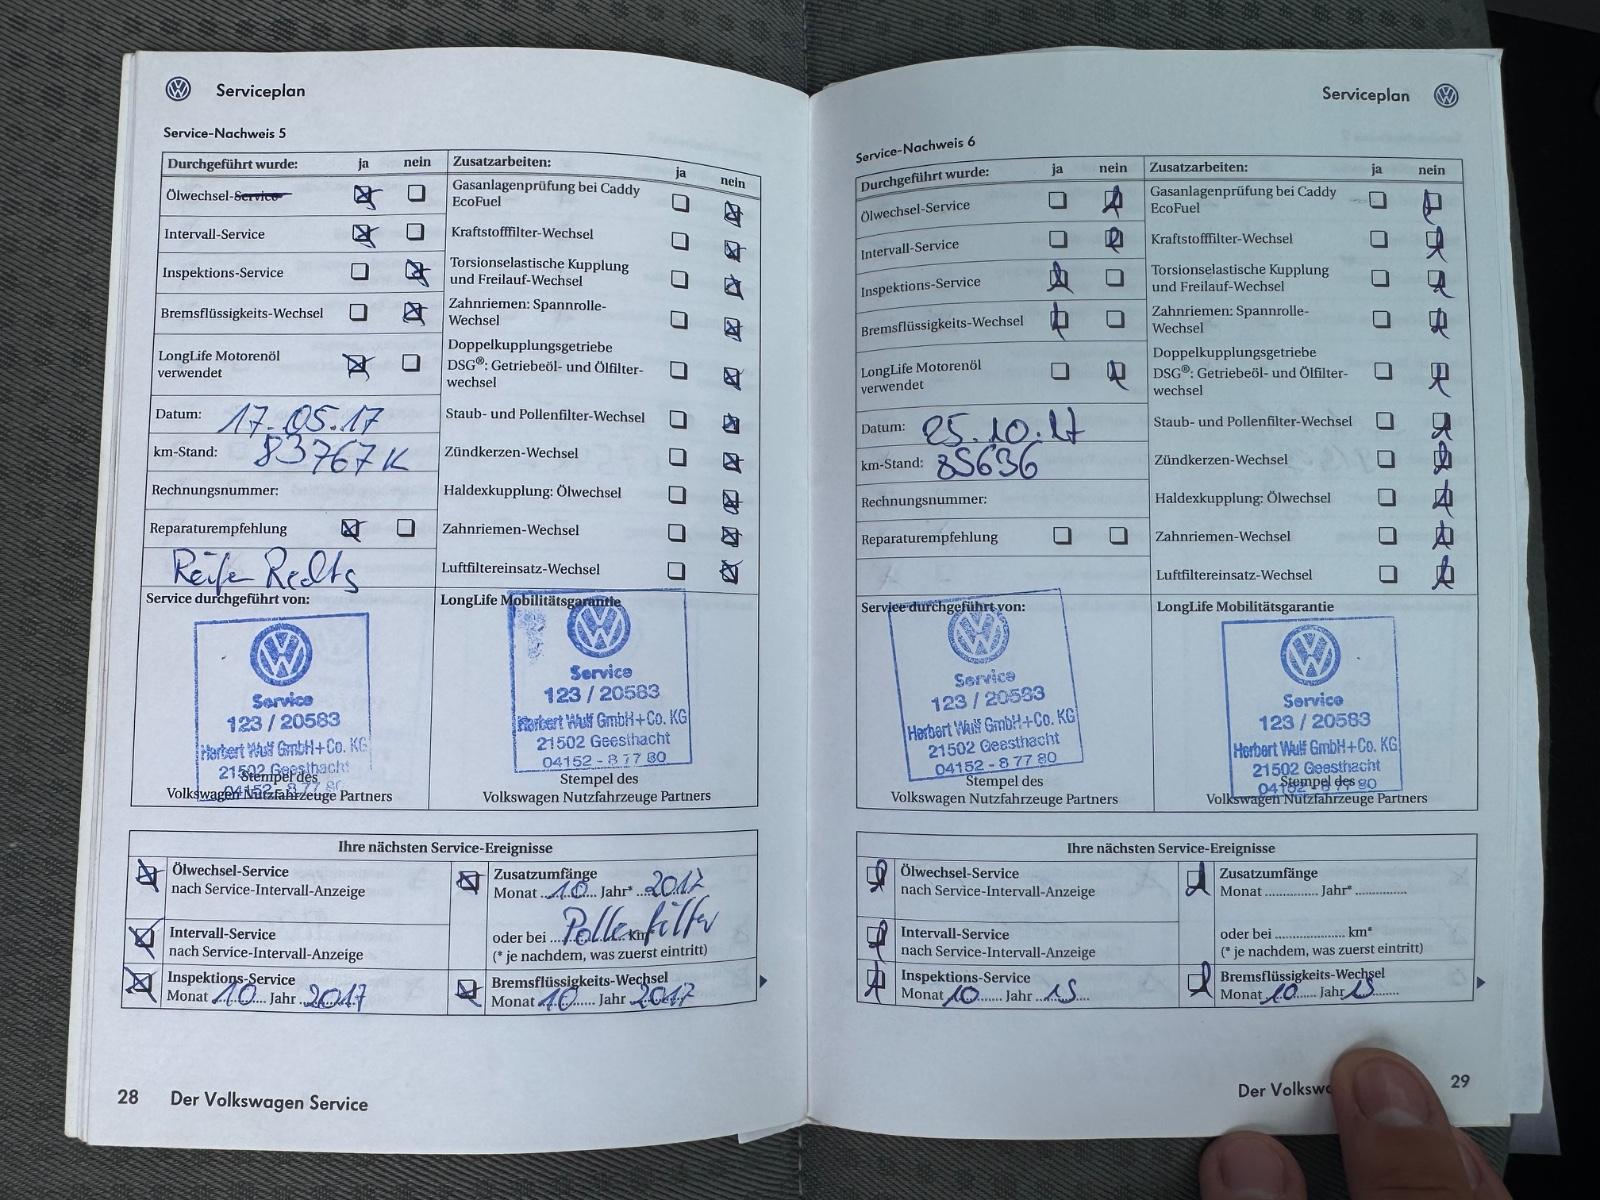 Serviceplan
Service-Nachweis 5
Durchgeführt wurde: ja nein
Ölwechsel-Service
Intervall-Service
Inspektions-Service
Bremsflüssigkeits-Wechsel
LongLife Motorenöl
verwendet
Datum: 17.05.17
km-Stand: 83767 K
Rechnungsnummer:
Reparaturempfehlung
Reifen Rechts
Zusatzarbeiten: ja nein
Gasanlagenprüfung bei Caddy
EcoFuel
Kraftstofffilter-Wechsel
Torsionselastische Kupplung
und Freilauf-Wechsel
Zahnriemen: Spannrolle-
Wechsel
Doppelkupplungsgetriebe
DSG®: Getriebeöl- und Ölfilter-
wechsel
Staub- und Pollenfilter-Wechsel
Zündkerzen-Wechsel
Haldexkupplung: Ölwechsel
Zahnriemen-Wechsel
Luftfiltereinsatz-Wechsel
Service durchgeführt von:
Service
123 / 20583
Herbert Wulf GmbH+Co. KG
21502 Geesthacht
04152 - 8 77 80
Stempel des
Volkswagen Nutzfahrzeuge Partners
LongLife Mobilitätsgarantie
Service
123 / 20583
Herbert Wulf GmbH+Co. KG
21502 Geesthacht
04152 - 8 77 80
Stempel des
Volkswagen Nutzfahrzeuge Partners
Ihre nächsten Service-Ereignisse
Ölwechsel-Service
nach Service-Intervall-Anzeige
Intervall-Service
nach Service-Intervall-Anzeige
Inspektions-Service
Monat 10 Jahr 2017
Zusatzumfänge
Monat 10 Jahr* 2017
Pollenfilter
oder bei km*
(* je nachdem, was zuerst eintritt)
Bremsflüssigkeits-Wechsel
Monat 10 Jahr 2017
28 Der Volkswagen Service
Serviceplan
Service-Nachweis 6
Durchgeführt wurde: ja nein
Ölwechsel-Service
Intervall-Service
Inspektions-Service
Bremsflüssigkeits-Wechsel
LongLife Motorenöl
verwendet
Datum: 25.10.17
km-Stand: 85636
Rechnungsnummer:
Reparaturempfehlung
Zusatzarbeiten: ja nein
Gasanlagenprüfung bei Caddy
EcoFuel
Kraftstofffilter-Wechsel
Torsionselastische Kupplung
und Freilauf-Wechsel
Zahnriemen: Spannrolle-
Wechsel
Doppelkupplungsgetriebe
DSG®: Getriebeöl- und Ölfilter-
wechsel
Staub- und Pollenfilter-Wechsel
Zündkerzen-Wechsel
Haldexkupplung: Ölwechsel
Zahnriemen-Wechsel
Luftfiltereinsatz-Wechsel
Service durchgeführt von:
Service
123 / 20583
Herbert Wulf GmbH+Co. KG
21502 Geesthacht
04152 - 8 77 80
Stempel des
Volkswagen Nutzfahrzeuge Partners
LongLife Mobilitätsgarantie
Service
123 / 20583
Herbert Wulf GmbH+Co. KG
21502 Geesthacht
04152 - 8 77 80
Stempel des
Volkswagen Nutzfahrzeuge Partners
Ihre nächsten Service-Ereignisse
Ölwechsel-Service
nach Service-Intervall-Anzeige
Intervall-Service
nach Service-Intervall-Anzeige
Inspektions-Service
Monat 10 Jahr
Zusatzumfänge
Monat Jahr*
oder bei km*
(* je nachdem, was zuerst eintritt)
Bremsflüssigkeits-Wechsel
Monat 10 Jahr
Der Volkswa 29